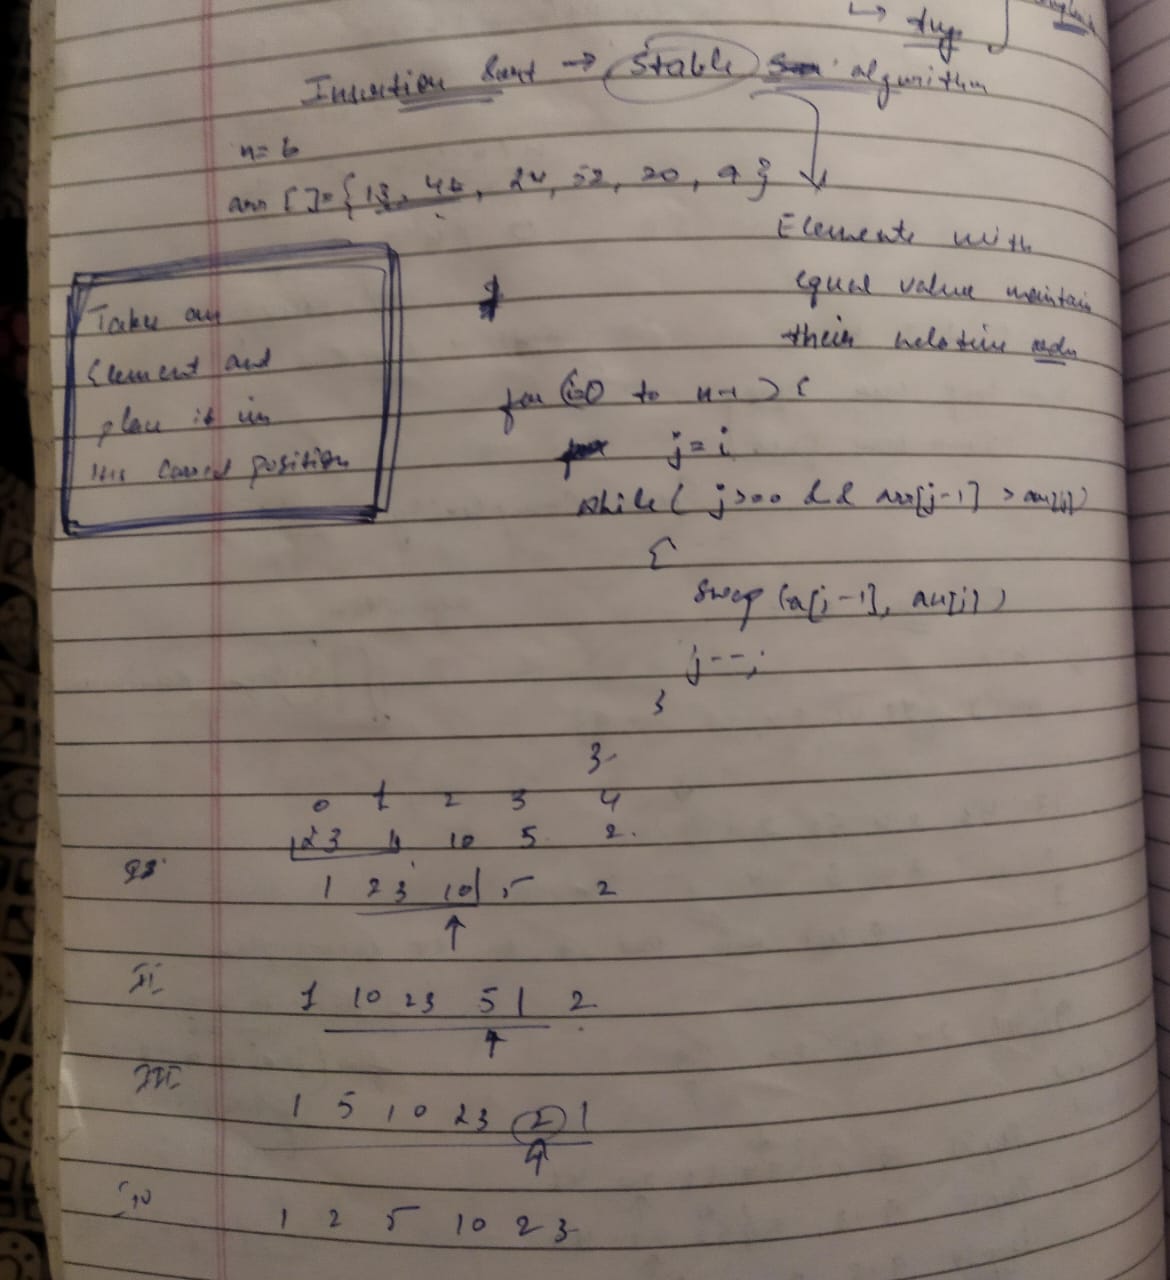 ↳ dry
Insertion Sort → Stable algorithm
n= 6
arr []={13, 46, 24, 52, 20, 9}
Elements with
equal value maintain
their relative order
Takes an
Element and
place it in
its correct position
for (i=0 to n-1) {
j = i
while ( j>=0 && arr[j-1] > arr[j])
{
swap (a[j-1], arr[j])
j--;
}
}
0 1 2 3 4
23 1 10 5 2
1 23 10| 5 2
↑
II 1 10 23 5 | 2
↑
III 1 5 10 23 2 |
↑
IV 1 2 5 10 23